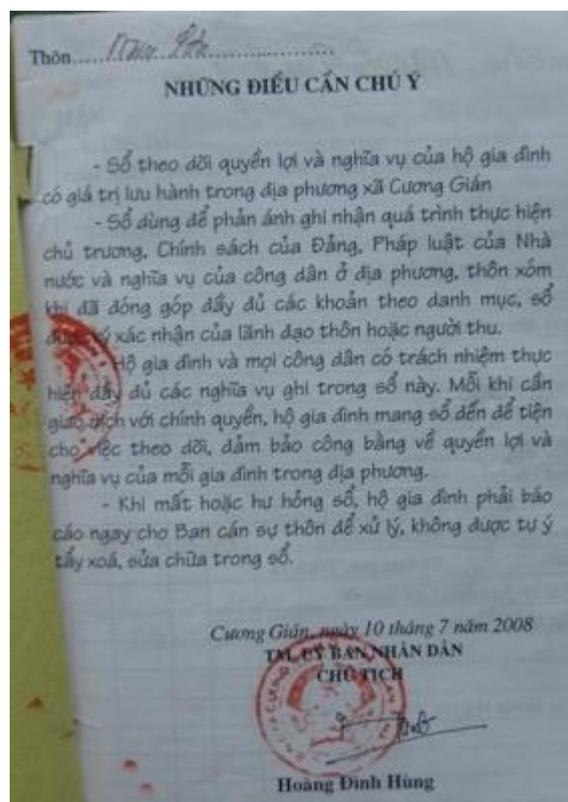 Thôn..................
NHỮNG ĐIỀU CẦN CHÚ Ý
- Sổ theo dõi quyền lợi và nghĩa vụ của hộ gia đình
có giá trị lưu hành trong địa phương xã Cương Gián
- Sổ dùng để phản ánh ghi nhận quá trình thực hiện
chủ trương, Chính sách của Đảng, Pháp luật của Nhà
nước và nghĩa vụ của công dân ở địa phương, thôn xóm
khi đã đóng góp đầy đủ các khoản theo danh mục, sổ
được ký xác nhận của lãnh đạo thôn hoặc người thu.
Hộ gia đình và mọi công dân có trách nhiệm thực
hiện đầy đủ các nghĩa vụ ghi trong sổ này. Mỗi khi cần
giao dịch với chính quyền, hộ gia đình mang sổ đến để tiện
cho việc theo dõi, đảm bảo công bằng về quyền lợi và
nghĩa vụ của mỗi gia đình trong địa phương.
- Khi mất hoặc hư hỏng sổ, hộ gia đình phải báo
cáo ngay cho Ban cán sự thôn để xử lý, không được tự ý
tẩy xoá, sửa chữa trong sổ.
Cương Gián, ngày 10 tháng 7 năm 2008
TM. UỶ BAN NHÂN DÂN
CHỦ TỊCH
Hoàng Đình Hùng